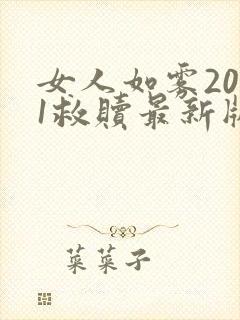 女人如雾20
1救赎最新版
菜菜子